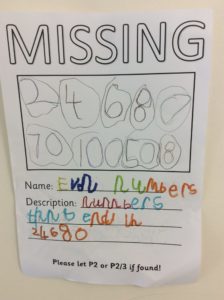 MISSING
2 4 6 8 0
70 100 50 8
Name: Evn numbers
Description: numbers
that end in
24680
Please let P2 or P2/3 if found!